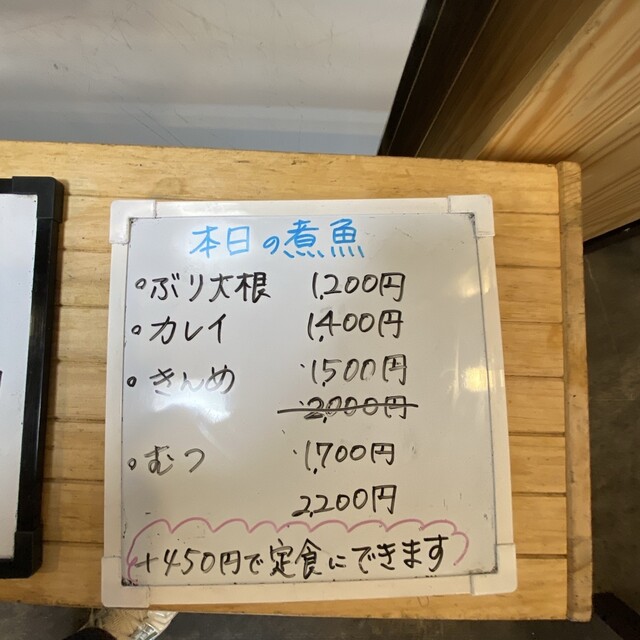 本日の煮魚
ぶり大根 1,200円
カレイ 1,400円
きんめ 1,500円
2,000円
むつ 1,700円
2,200円
+450円で定食にできます